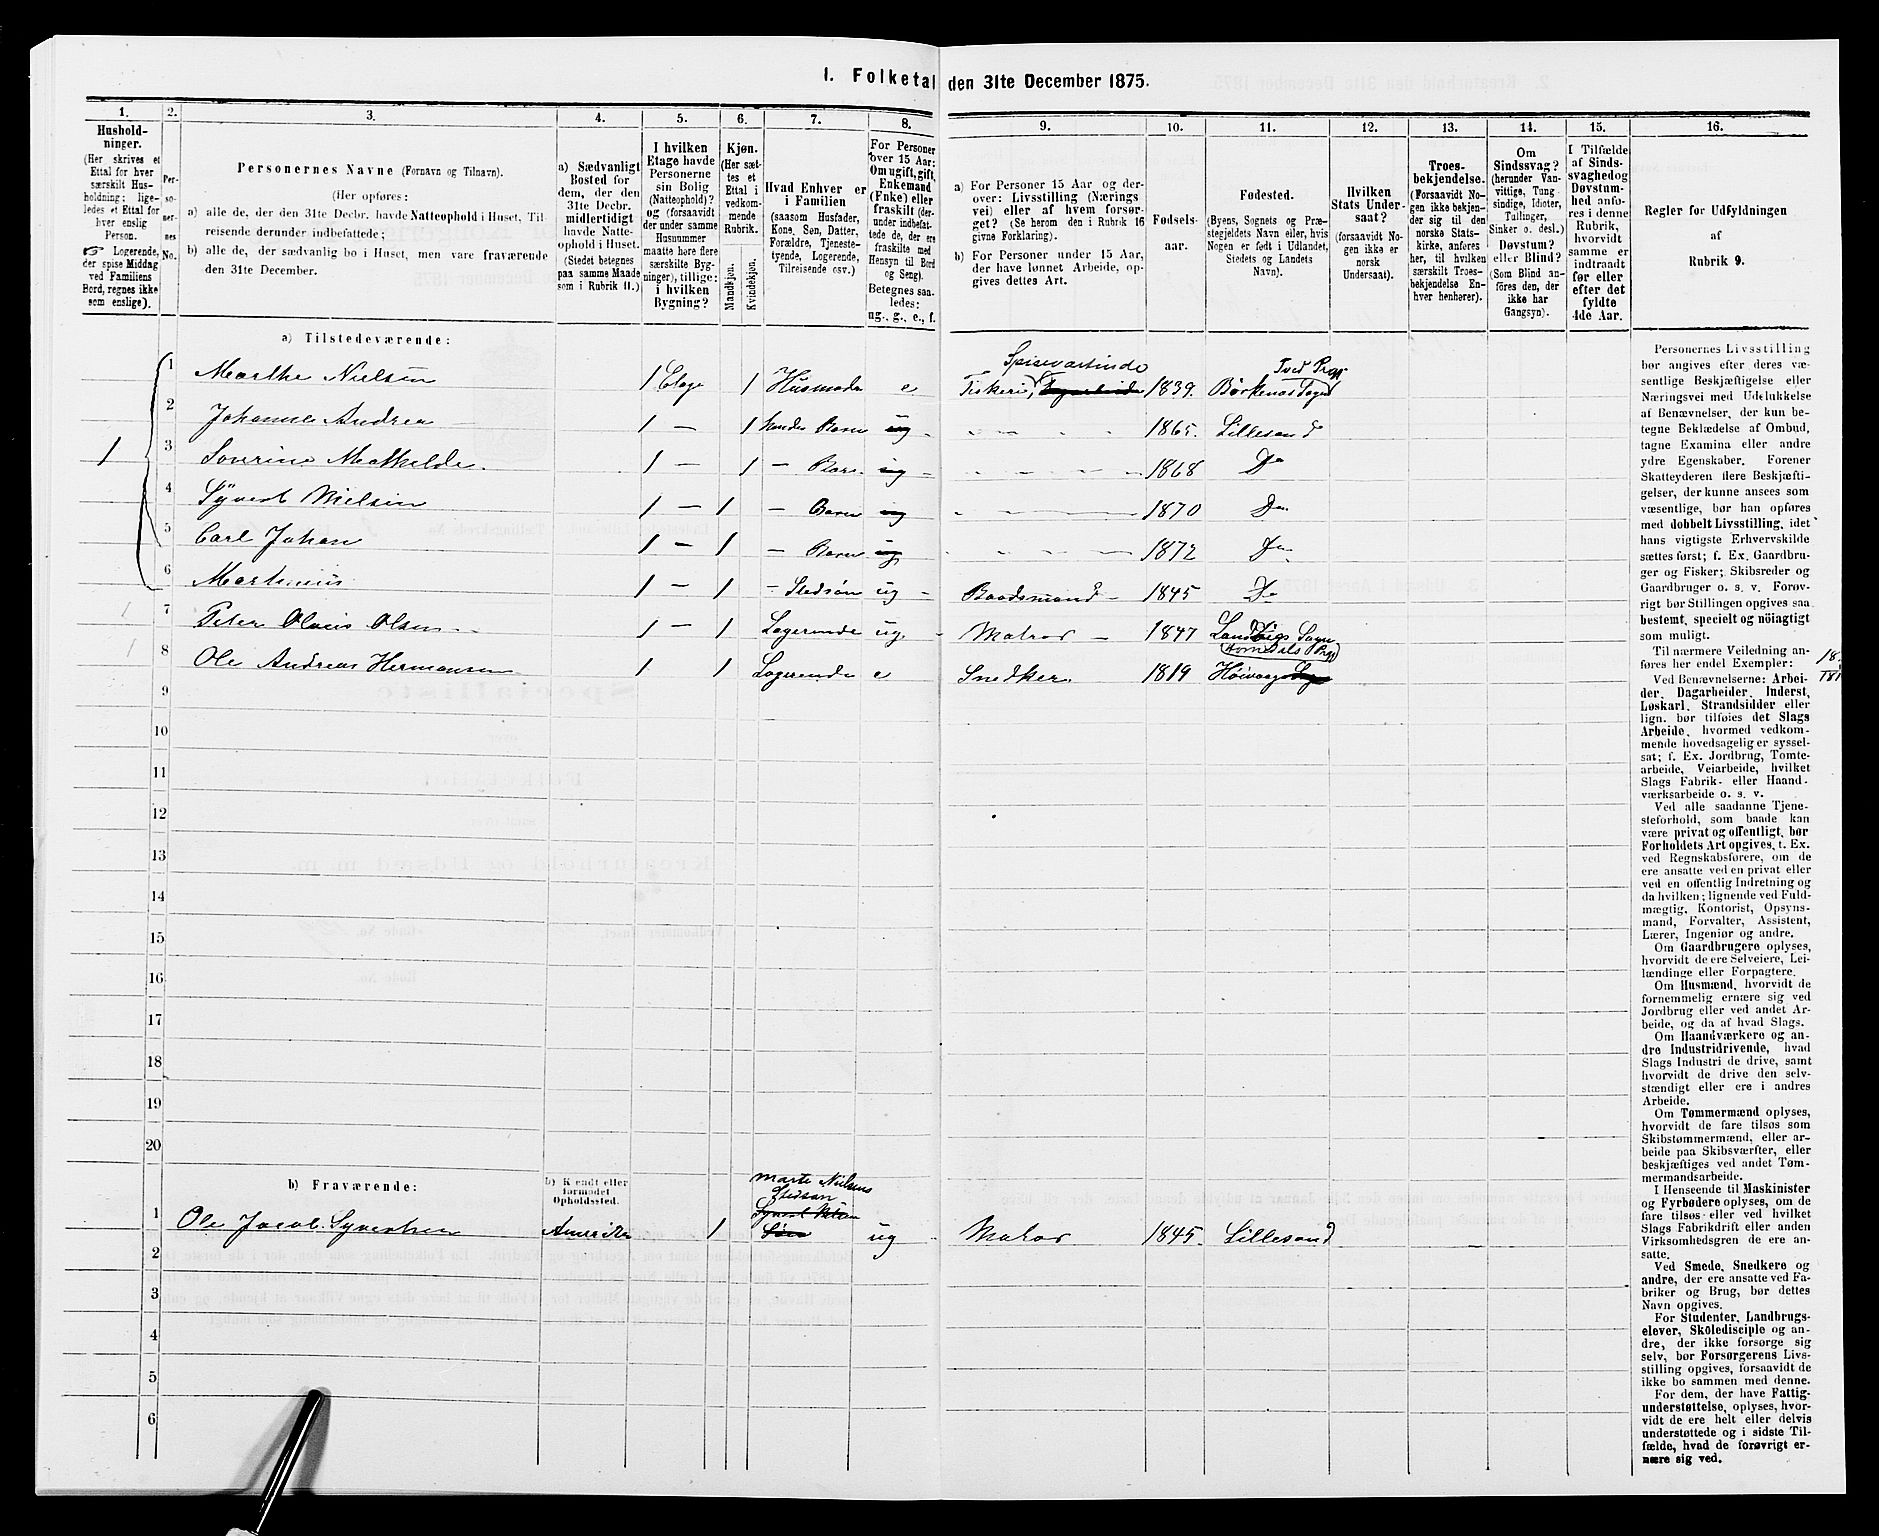 1. Folketal den 31te December 1875.
1. 2. 3. 4. 5. 6. 7. 8. 9. 10. 11. 12. 13. 14. 15. 16.
Hushold-
ninger.
(Her skrives et
Ettal for hver
særskilt Hus-
holdning; lige-
ledes et Ettal for
hver enslig
Person.
Logerende,
der spise Middag
ved Familiens
Bord, regnes ikke
som enslige).
Per-
so-
ner-
nes
No.
Personernes Navne (Fornavn og Tilnavn).
(Her opføres:
a) alle de, der den 31te Decbr. havde Natteophold i Huset, Til-
reisende derunder indbefattede;
b) alle de, der sædvanlig bo i Huset, men vare fraværende
den 31te December.
a) Sædvanligt
Bosted for
dem, der den
31te Decbr.
midlertidigt
havde Natte-
ophold i Huset.
(Stedet betegnes
paa samme Maade
som i Rubrik 11.)
I hvilken
Etage havde
Personerne
sin Bolig
(Natteophold)?
og (forsaavidt
der under samme
Husnummer
maatte høre flere
særskilte Byg-
ninger), tillige:
i hvilken
Bygning?
Kjøn.
(Her sæt-
tes et
Ettal i
vedkom-
mende
Rubrik.
Mandkjøn.
Kvindekjøn.
Hvad Enhver er
i Familien
(saasom Husfader,
Kone, Søn, Datter,
Forældre, Tjeneste-
tyende, Logerende,
Tilreisende osv.)
For Personer
over 15 Aar:
Om ugift, gift,
Enkemand
(Enke) eller
fraskilt (der-
under indbefat-
tede de, der ere
fraskilte med
Hensyn til Bord
og Seng).
Betegnes saa-
ledes:
ug., g., e., f.
a) For Personer 15 Aar og der-
over: Livsstilling (Nærings
vei) eller af hvem forsør-
get? (Se herom den i Rubrik 16
givne Forklaring).
b) For Personer under 15 Aar,
der have lønnet Arbeide, op-
gives dettes Art.
Fødsels-
aar.
Fødested.
(Byens, Sognets og Præ-
stegjeldets Navn eller, hvis
Nogen er født i Udlandet,
Stedets og Landets
Navn).
Hvilken
Stats Under-
saat?
(forsaavidt No-
gen ikke er
norsk
Undersaat).
Troes-
bekjendelse.
(Forsaavidt No-
gen ikke bekjen-
der sig til den
norske Stats-
kirke, anføres
her, til hvilken
særskilt Troes-
bekjendelse En-
hver henhører).
Om
Sindssvag?
(herunder Van-
vittige, Tung
sindige, Idioter,
Tullinger,
Sinker o. desl.)
Døvstum?
eller Blind?
(Som Blind an-
føres den, der
ikke har
Gangsyn).
I Tilfælde
af Sinds-
svaghed og
Døvstum-
hed anfø-
res i denne
Rubrik,
hvorvidt
samme er
indtraadt
før eller
efter det
fyldte
4de Aar.
Regler for Udfyldningen
af
Rubrik 9.
a) Tilstedeværende:
1 Marthe Nielsen 1 Etage 1 Husmoder e Fiskeri, Spisevartinde 1839. Tved Prgj
2 Johanne Andrea 1 — 1 hendes Barn ug 1865. Lillesand
1 3 Soverine Mathilde. 1 — 1 — Barn ug 1868 Do
4 Syvert Nielsen 1 — 1 — Barn ug 1870 Do
5 Carl Johan 1 — 1 — Barn ug 1872 Do
6 Martinius 1 — 1 — Stedsøn ug Baadsmand 1845 Do
1 7 Peter Olaus Olsen 1 — 1 Logerende ug. Matros 1847 Landvigs Sogn
1 8 Ole Andreas Hermansen 1 1 Logerende e Snedker 1819 Høivaag Sogn
9
10
11
12
13
14
15
16
17
18
19
20
b) Fraværende:
b) Kjendt eller
formodet
Opholdssted.
Marte Nielsens
Stedsøn
1 Ole Jacob Syvertsen Amerika 1 Søn ug Matros 1845. Lillesand
2
3
4
5
6
Personernes Livsstilling
bør angives efter deres væ-
sentlige Beskjæftigelse eller
Næringsvei med Udelukkelse
af Benævnelser, der kun be-
tegne Beklædelse af Ombud,
tagne Examina eller andre
ydre Egenskaber. Forener
Skatteyderen flere Beskjæfti-
gelser, der kunne ansees som
væsentlige, bør han opføres
med dobbelt Livsstilling, idet
hans vigtigste Erhvervskilde
sættes først; f. Ex. Gaardbru-
ger og Fisker; Skibsreder og
Gaardbruger o. s. v. Forøv-
rigt bør Stillingen opgives saa
bestemt, specielt og nøiagtigt
som muligt.
Til nærmere Veiledning an-
føres her endel Exempler:
Ved Benævnelserne: Arbei-
der, Dagarbeider, Inderst,
Løskarl, Strandsidder eller
lign. bør tilføies det Slags
Arbeide, hvormed vedkom-
mende hovedsagelig er syssel-
sat; f. Ex. Jordbrug, Tomte-
arbeide, Veiarbeide, hvilket
Slags Fabrik- eller Haand-
værksarbeide o. s. v.
Ved alle saadanne Tjene-
steforhold, som baade kan
være privat og offentligt, bør
Forholdets Art opgives, f. Ex.
ved Regnskabsførere, om de
ere ansatte ved en privat eller
ved en offentlig Indretning og
da hvilken; lignende ved Fuld-
mægtig, Kontorist, Opsyns-
mand, Forvalter, Assistent,
Lærer, Ingeniør og andre.
Om Gaardbrugere oplyses,
hvorvidt de ere Selveiere, Lei-
lændinge eller Forpagtere.
Om Husmænd, hvorvidt de
fornemmelig ernære sig ved
Jordbrug eller ved andet Ar-
beide, og da af hvad Slags.
Om Haandværkere og an-
dre Industridrivende, hvad
Slags Industri de drive, samt
hvorvidt de drive den selv-
stændigt eller ere i andres
Arbeide.
Om Tømmermænd oplyses,
hvorvidt de fare tilsøs som
Skibstømmermænd, eller ar-
beide paa Skibsværfter, eller
beskjæftiges ved andet Tøm-
mermandsarbeide.
I Henseende til Maskinister
og Fyrbødere oplyses, om de
fare tilsøs eller ved hvilket
Slags Fabrikdrift eller anden
Virksomhedsgren de ere an-
satte.
Ved Smede, Snedkere og
andre, der ere ansatte ved Fa-
briker og Brug, bør dettes
Navn opgives.
For Studenter, Landbrugs-
elever, Skoledisciple og an-
dre, der ikke forsørge sig
selv, bør Forsørgerens Livs-
stilling opgives, forsaavidt de
ikke bo sammen med denne.
For dem, der have Fattig-
understøttelse, oplyses, hvor-
vidt de ere helt eller delvis
understøttede og i sidste Til-
fælde, hvad de forøvrigt er-
nære sig ved.